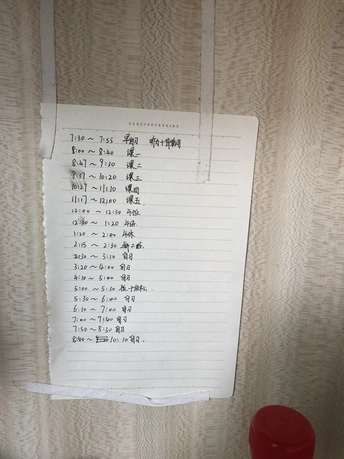 7:30 ~ 7:55 早自习
8:00 ~ 8:40 课一
8:47 ~ 9:30 课二
9:37 ~ 10:20 课三
10:27 ~ 11:10 课四
11:17 ~ 12:00 课五
12:00 ~ 12:30 午饭
12:30 ~ 1:20 午休
1:20 ~ 2:00 午休
2:15 ~ 2:30
2:30 ~ 3:10 自习
3:20 ~ 4:00 自习
4:10 ~ 5:00 自习
5:00 ~ 5:30 饭+放松
5:30 ~ 6:00 自习
6:10 ~ 7:00 自习
7:00 ~ 7:40 自习
7:50 ~ 8:30 自习
8:40 ~ 10:30 自习